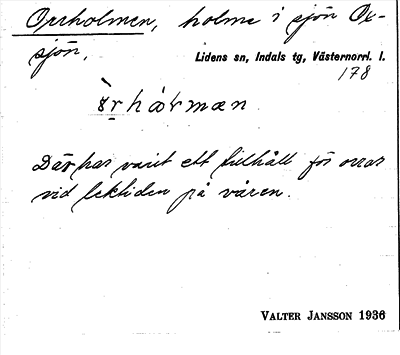 Orrholmen, holme i sjön Ox-
sjön.
Lidens sn, Indals tg, Västernorrl. l.
178
Där har varit ett tillhåll för orrar
vid lektiden på våren.
VALTER JANSSON 1936